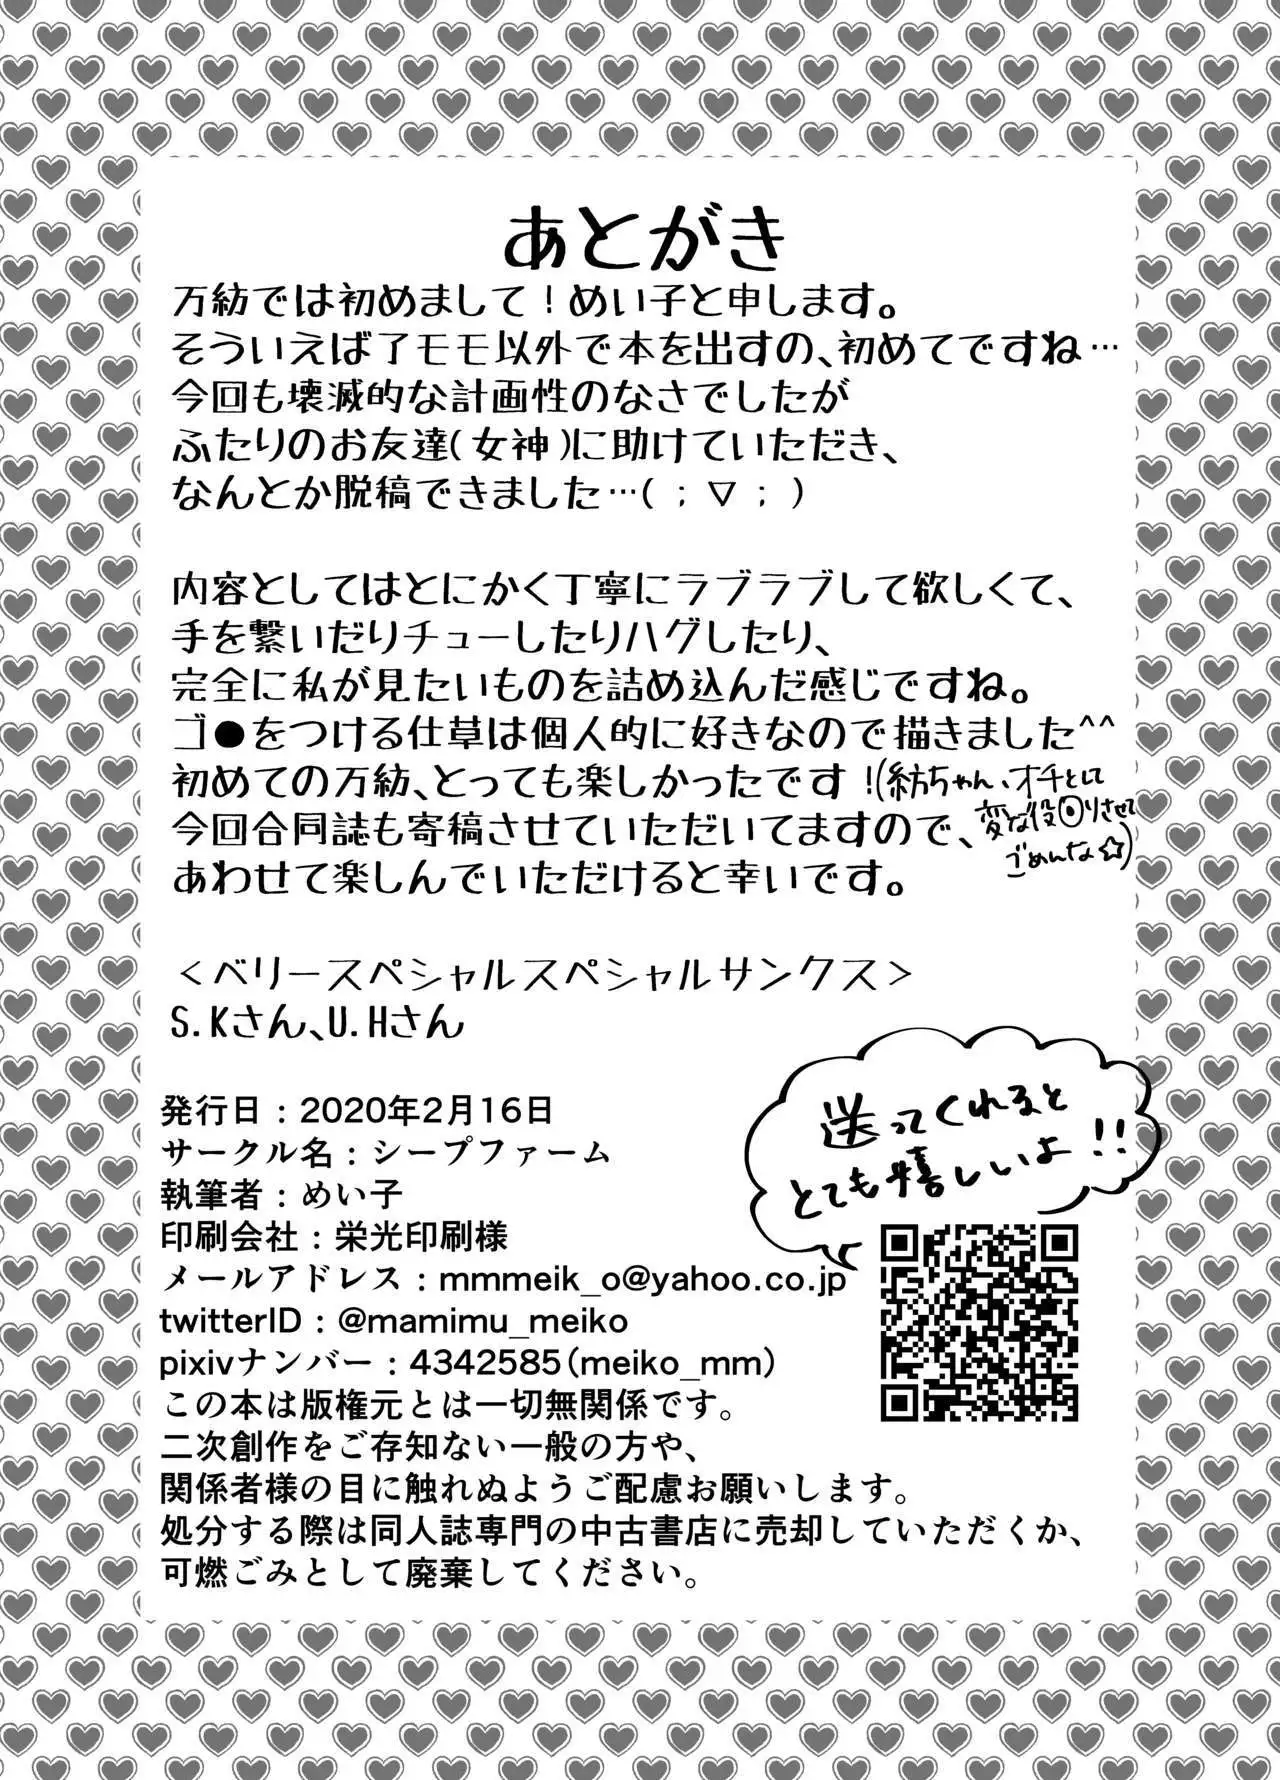 あとがき
万紡では初めまして！めい子と申します。
そういえば了モモ以外で本を出すの、初めてですね…
今回も壊滅的な計画性のなさでしたが
ふたりのお友達(女神)に助けていただき、
なんとか脱稿できました…( ；▽；)
内容としてはとにかく丁寧にラブラブして欲しくて、
手を繋いだりチューしたりハグしたり、
完全に私が見たいものを詰め込んだ感じですね。
ゴ●をつける仕草は個人的に好きなので描きました^^
初めての万紡、とっても楽しかったです！(紡ちゃん、オチとして
変な役回りさせて
ごめんな☆)
今回合同誌も寄稿させていただいてますので、
あわせて楽しんでいただけると幸いです。
＜ベリースペシャルスペシャルサンクス＞
S.Kさん、U.Hさん
送ってくれると
とても嬉しいよ!!
発行日：2020年2月16日
サークル名：シープファーム
執筆者：めい子
印刷会社：栄光印刷様
メールアドレス：mmmeik_o@yahoo.co.jp
twitterID：@mamimu_meiko
pixivナンバー：4342585(meiko_mm)
この本は版権元とは一切無関係です。
二次創作をご存知ない一般の方や、
関係者様の目に触れぬようご配慮お願いします。
処分する際は同人誌専門の中古書店に売却していただくか、
可燃ごみとして廃棄してください。